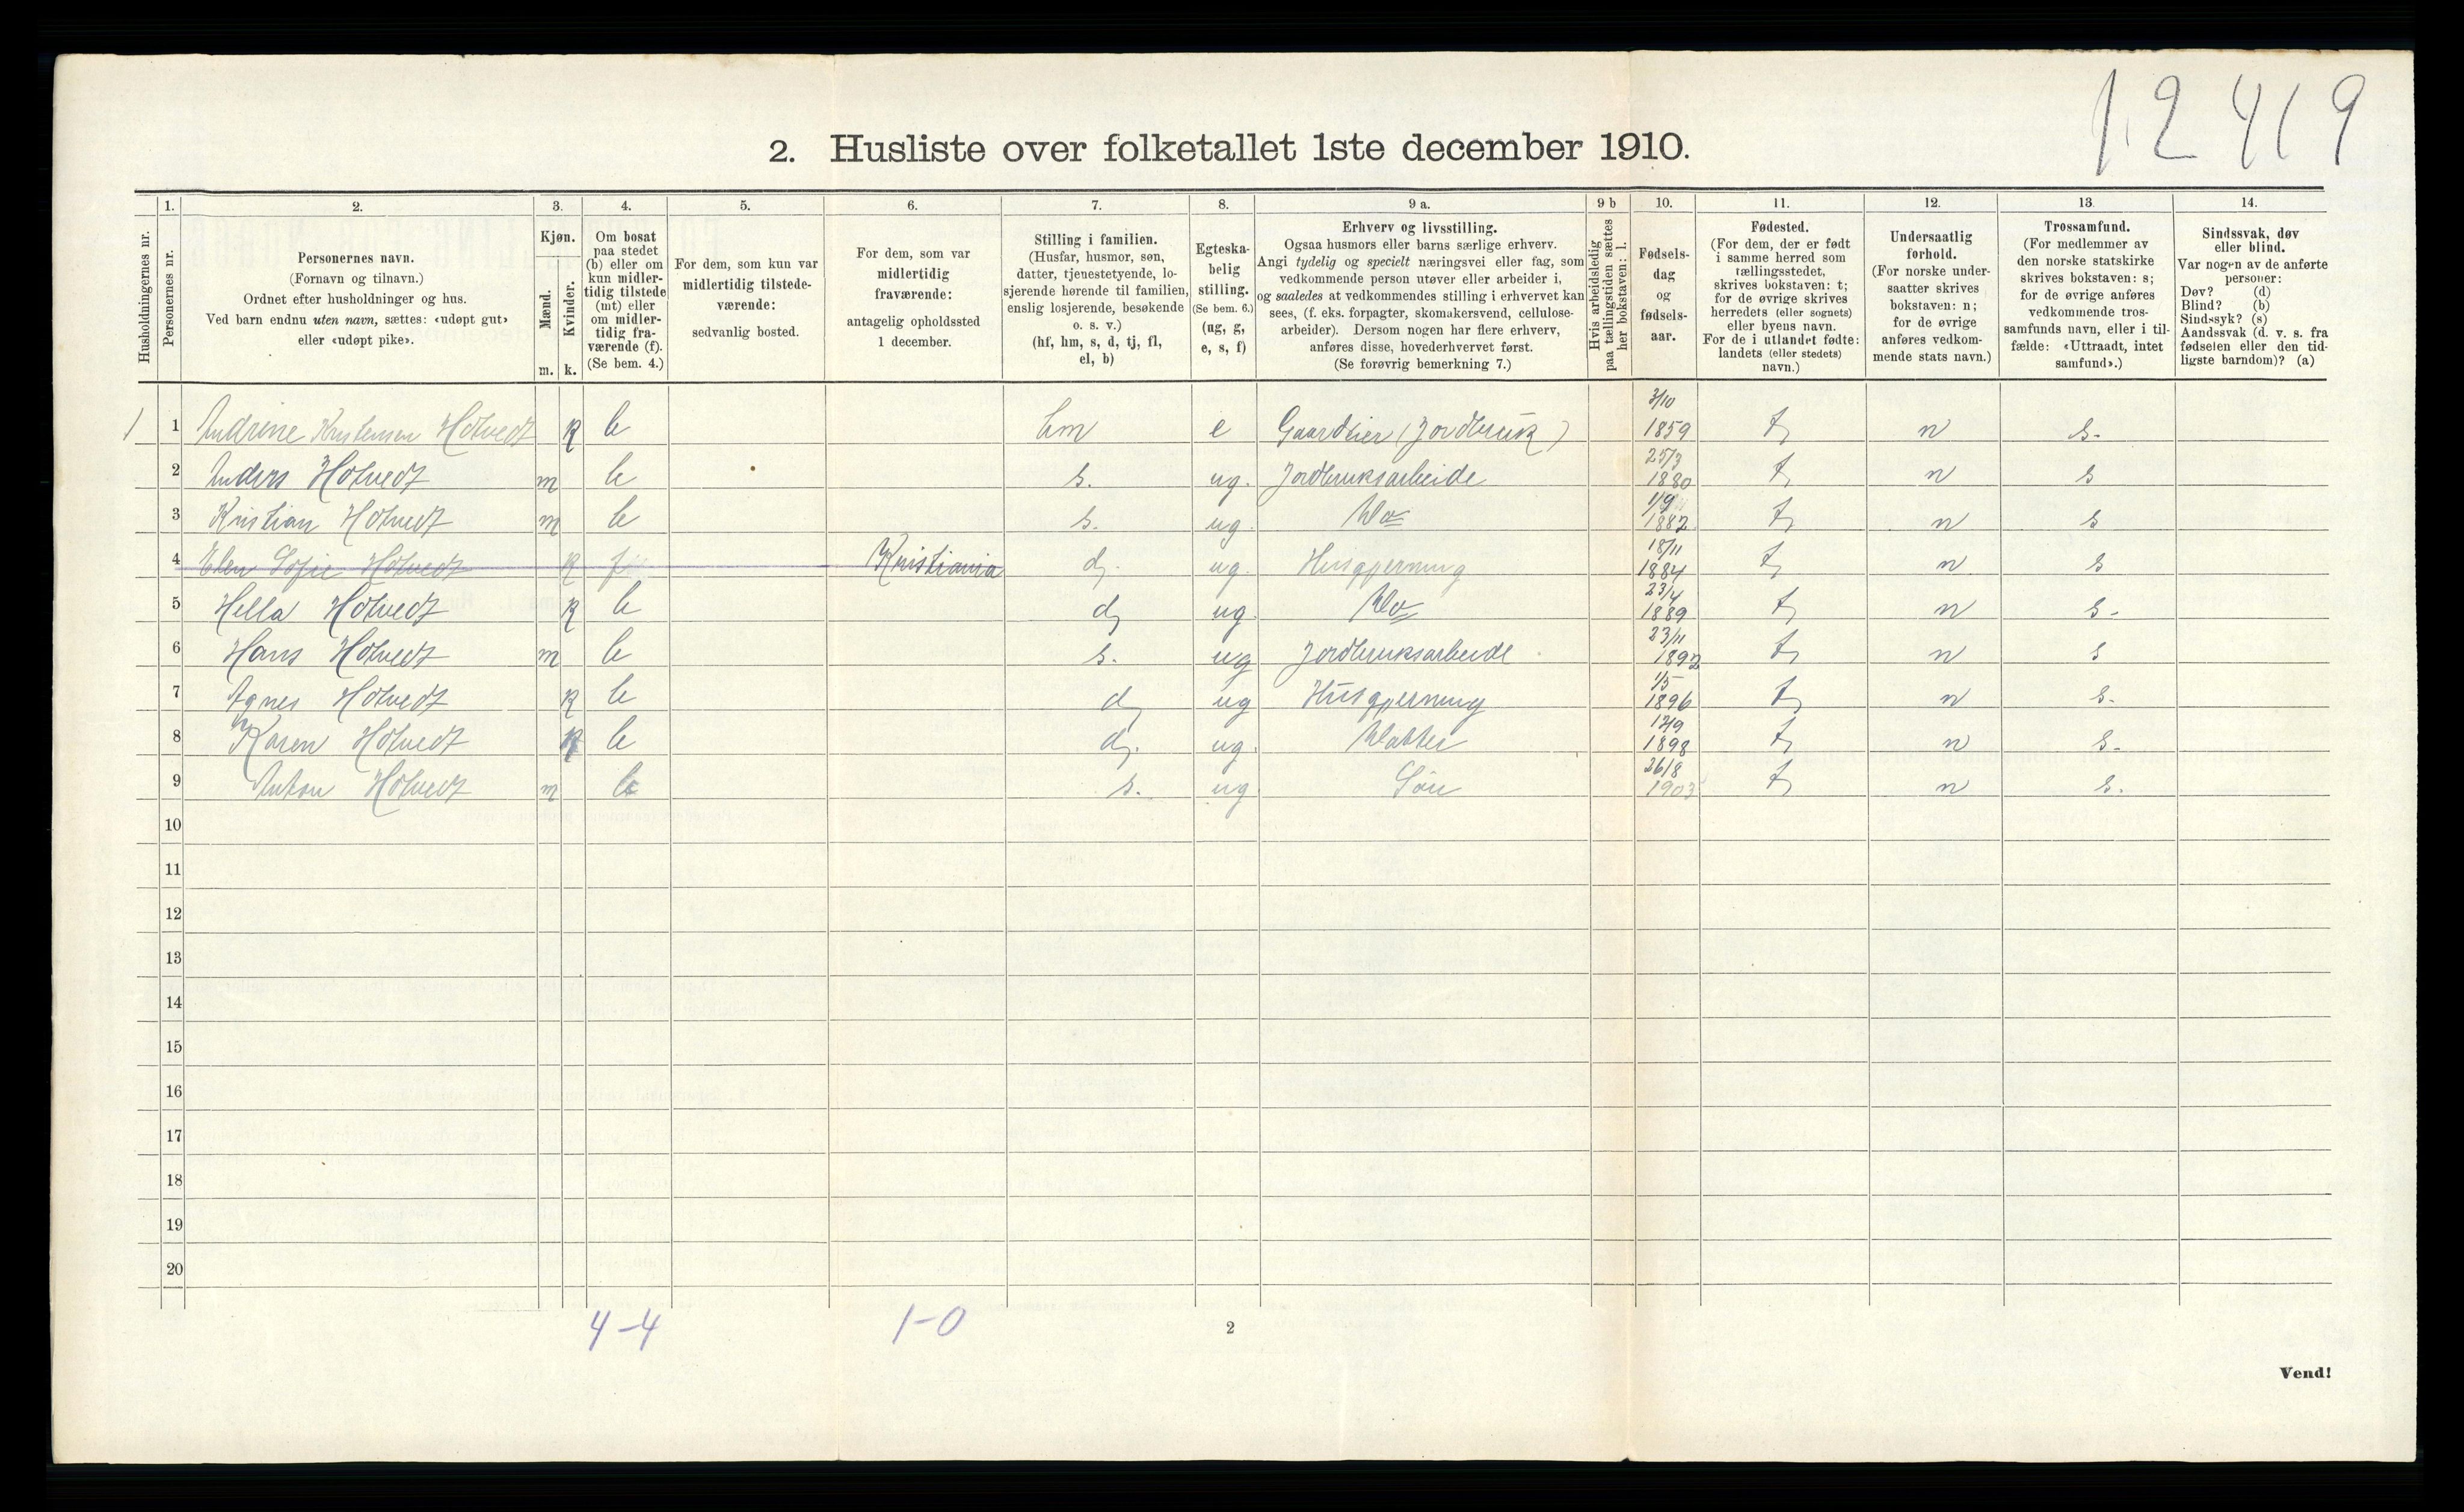 1.2 41 9
2. Husliste over folketallet 1ste december 1910.
Husholdningernes nr.
1.
Personernes nr.
2.
Personernes navn.
(Fornavn og tilnavn.)
Ordnet efter husholdninger og hus.
Ved barn endnu uten navn, sættes: «udøpt gut»
eller «udøpt pike».
3.
Kjøn.
Mænd.
Kvinder.
m. k.
4.
Om bosat
paa stedet
(b) eller om
kun midler-
tidig tilstede
(mt) eller
om midler-
tidig fra-
værende (f).
(Se bem. 4.)
5.
For dem, som kun var
midlertidig tilstede-
værende:
sedvanlig bosted.
6.
For dem, som var
midlertidig
fraværende:
antagelig opholdssted
1 december.
7.
Stilling i familien.
(Husfar, husmor, søn,
datter, tjenestetyende, lo-
sjerende hørende til familien,
enslig losjerende, besøkende
o. s. v.)
(hf, hm, s, d, tj, fl,
el, b)
8.
Egteska-
belig
stilling.
(Se bem. 6.)
(ug, g,
e, s, f)
9 a.
Erhverv og livsstilling.
Ogsaa husmors eller barns særlige erhverv.
Angi tydelig og specielt næringsvei eller fag, som
vedkommende person utøver eller arbeider i,
og saaledes at vedkommendes stilling i erhvervet kan
sees, (f. eks. forpagter, skomakersvend, cellulose-
arbeider). Dersom nogen har flere erhverv,
anføres disse, hovederhvervet først.
(Se forøvrig bemerkning 7.)
9 b
Hvis arbeidsledig
paa tællingstiden sættes
her bokstaven: l.
10.
Fødsels-
dag
og
fødsels-
aar.
11.
Fødested.
(For dem, der er født
i samme herred som
tællingsstedet,
skrives bokstaven: t;
for de øvrige skrives
herredets (eller sognets)
eller byens navn.
For de i utlandet fødte:
landets (eller stedets)
navn.)
12.
Undersaatlig
forhold.
(For norske under-
saatter skrives
bokstaven: n;
for de øvrige
anføres vedkom-
mende stats navn.)
13.
Trossamfund.
(For medlemmer av
den norske statskirke
skrives bokstaven: s;
for de øvrige anføres
vedkommende tros-
samfunds navn, eller i til-
fælde: «Uttraadt, intet
samfund».)
14.
Sindssvak, døv
eller blind.
Var nogen av de anførte
personer:
Døv? (d)
Blind? (b)
Sindssyk? (s)
Aandssvak (d. v. s. fra
fødselen eller den tid-
ligste barndom)? (a)
1 1 Andrine Kristensen Holtvedt k b hm e Gaardbier (Jordbruk) 3/10 1859 t n s.
2 Anders Holtvedt m b s. ug. Jordbruksarbeide 25/3 1880 t n s
3 Kristian Holtvedt m b s. ug. Do 1/9 1882 t n s
4 Elen Sofie Holtvedt k f Kristiania d. ug. Husgjerning 18/11 1884 t n s
5 Hella Holtvedt k b d ug. Do 23/4 1889 t n s.
6 Hans Holtvedt m b s. ug Jordbruksarbeide 23/11 1892 t n s
7 Agnes Holtvedt k b d ug Husgjerning 1/5 1896 t n s.
8 Karen Holtvedt k b d. ug. Datter 12/9 1898 t n s.
9 Anton Holtvedt m b s. ug Søn 26/8 1903 t n s.
10
11
12
13
14
15
16
17
18
19
20
4-4 1-0
2
Vend!